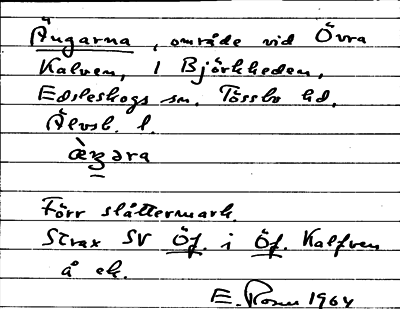 Ängarna, område vid Övra
Kalven, 1 Björkheden,
Edsleskogs sn. Tössbo hd,
Älvsb. l.
æ̀ŋəra
Förr slåttermark.
Strax SV Öf. i Öf. Kalfven
å ek.
E. Rosen 1964